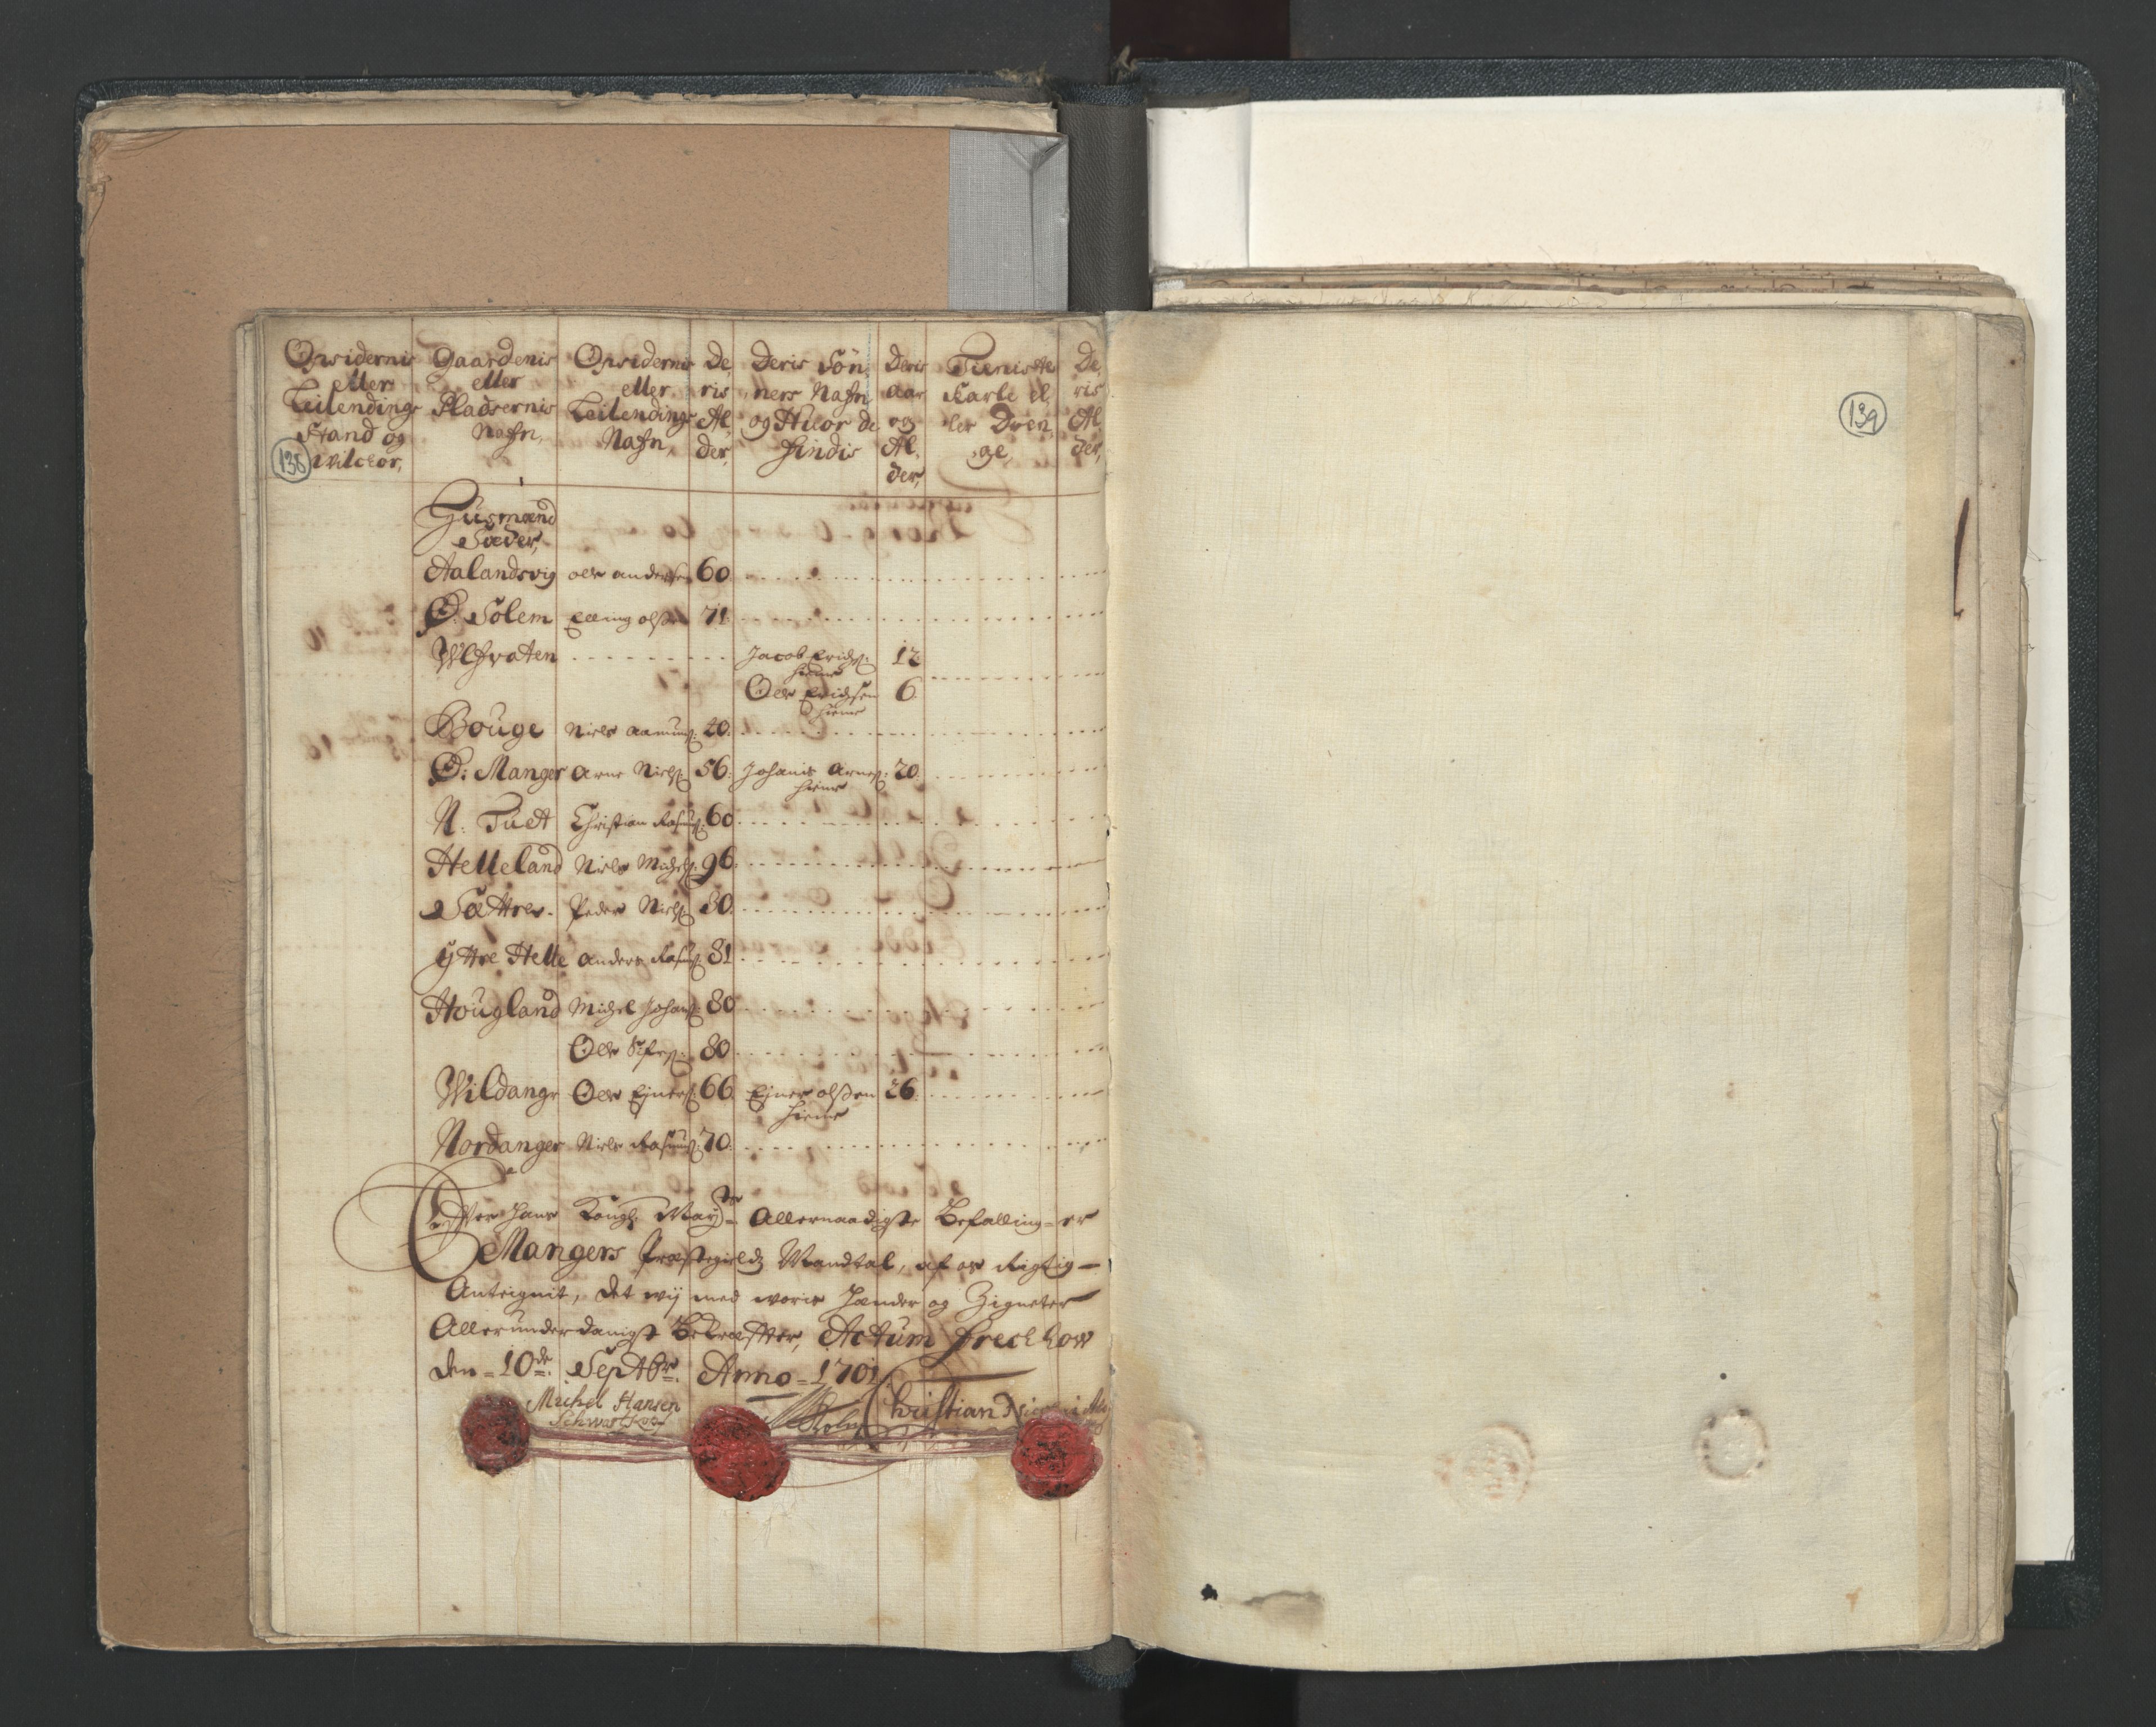 Opsidernis eller Leilendings Stand og Wilckor,
Gaardenis eller Pladsernis Nafn,
Opsidernis eller Leilendings Nafn,
De, ris Al, der,
Deris Sön, ners Nafn og Hvor de findis
Deris aar og Al, der,
Tieniste Karle el, ler Dren, ge,
De, ris Al, der,
138
139
Husmænd Sæder,
Aalandsvig Ole andersen 60
Ø. Solem Elling olsen 71
Wlfvaten Jacob Erichs: hieme 12
Ole Erichsen hieme 6
Bouge Niels aamunds: 40
Ø: Manger Arne Niels: 56: Johanis Arnes: hieme 20
N: Tuet Christian Rasmus: 60
Helleland Niels Michels: 96
Sættre Peder Niels: 80
Yttre Helle Anders Rasmus: 81
Hougland Michel Johans: 80
Ole 80
Wildange Ole Ejners: 66 Ejner olsen hieme 26
Nordanger Niels Rasmus: 70
Efter Hans Kongl: May:ts Allernaadigste Befalling er
Mangers Præstegields Mandtal, af os Rigtig
Antegnit, det wij med woris Hænder og Zigneter
Allerunderdanigst Bekræfter, Actum Freckhow
den 10de Septbr: Anno 1701
Michel Hansen
Christian